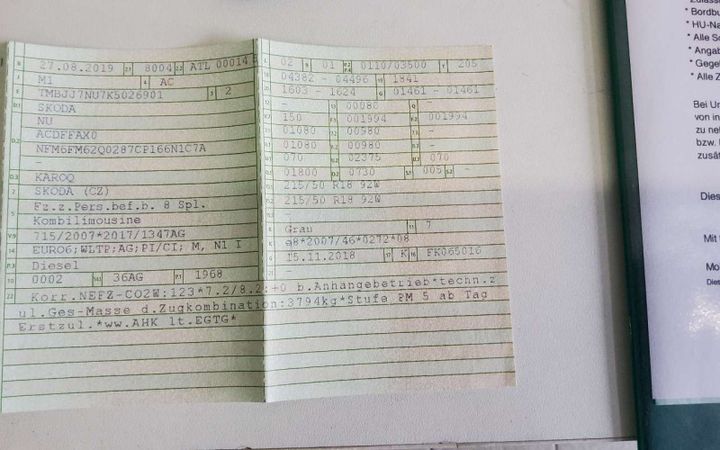 27.08.2019 8004 ATL 00014
M1 AC
TMBJJ7NU7K5026901 2
SKODA
NU
ACDFFAX0
NFM6FM62Q0287CP166N1C7A
-
KAROQ
SKODA (CZ)
Fz.z.Pers.bef.b. 8 Spl.
Kombilimousine
715/2007*2017/1347AG
EURO6;WLTP;AG;PI/CI; M, N1 I
Diesel
0002 36AG 1968
02 01 0110/03500 205
04382 - 04496 1841
1603 - 1624 01461 - 01461
- 00080 -
150 001994 001994
01080 00980 -
01080 00980 -
070 02375 070
01800 0730 005 -
215/50 R18 92W
215/50 R18 92W
-
Grau 7
e8*2007/46*0272*08
15.11.2018 K FK065016
Korr.NEFZ-CO2W:123*7.2/8.2:+0 b.Anhängebetrieb*techn.z
ul.Ges-Masse d.Zugkombination:3794kg*Stufe PM 5 ab Tag
Erstzul.*ww.AHK lt.EGTG*
* Bordbu
* HU-Na
* Alle Sc
* Angab
* Gegel
* Alle Z
Bei Un
von in
zu ne
bzw.
zusät
Dies
Mit
Mo
Dies